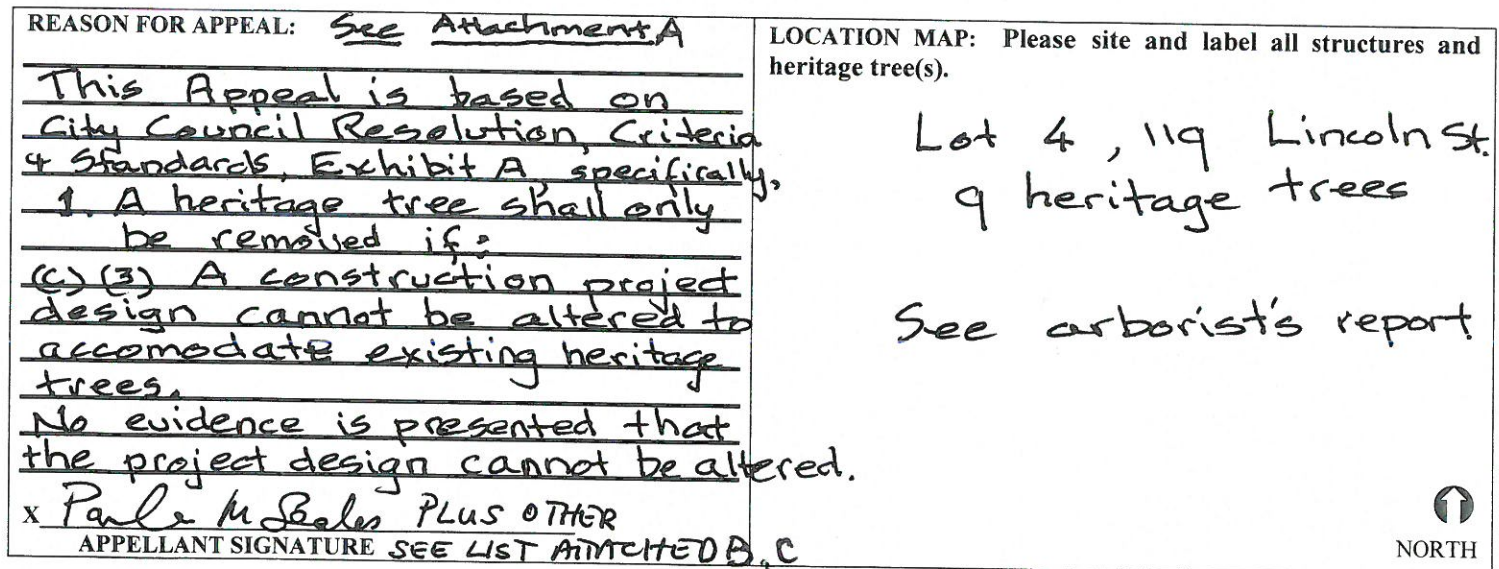 REASON FOR APPEAL: See Attachment A
This Appeal is based on
City Council Resolution, Criteria
& Standards, Exhibit A, specifically,
1. A heritage tree shall only
be removed if:
(c) (3) A construction project
design cannot be altered to
accomodate existing heritage
trees.
No evidence is presented that
the project design cannot be altered.
X PLUS OTHER
APPELLANT SIGNATURE SEE LIST ATTACHED B, C
LOCATION MAP: Please site and label all structures and
heritage tree(s).
Lot 4, 119 Lincoln St.
9 heritage trees
See arborist's report
NORTH